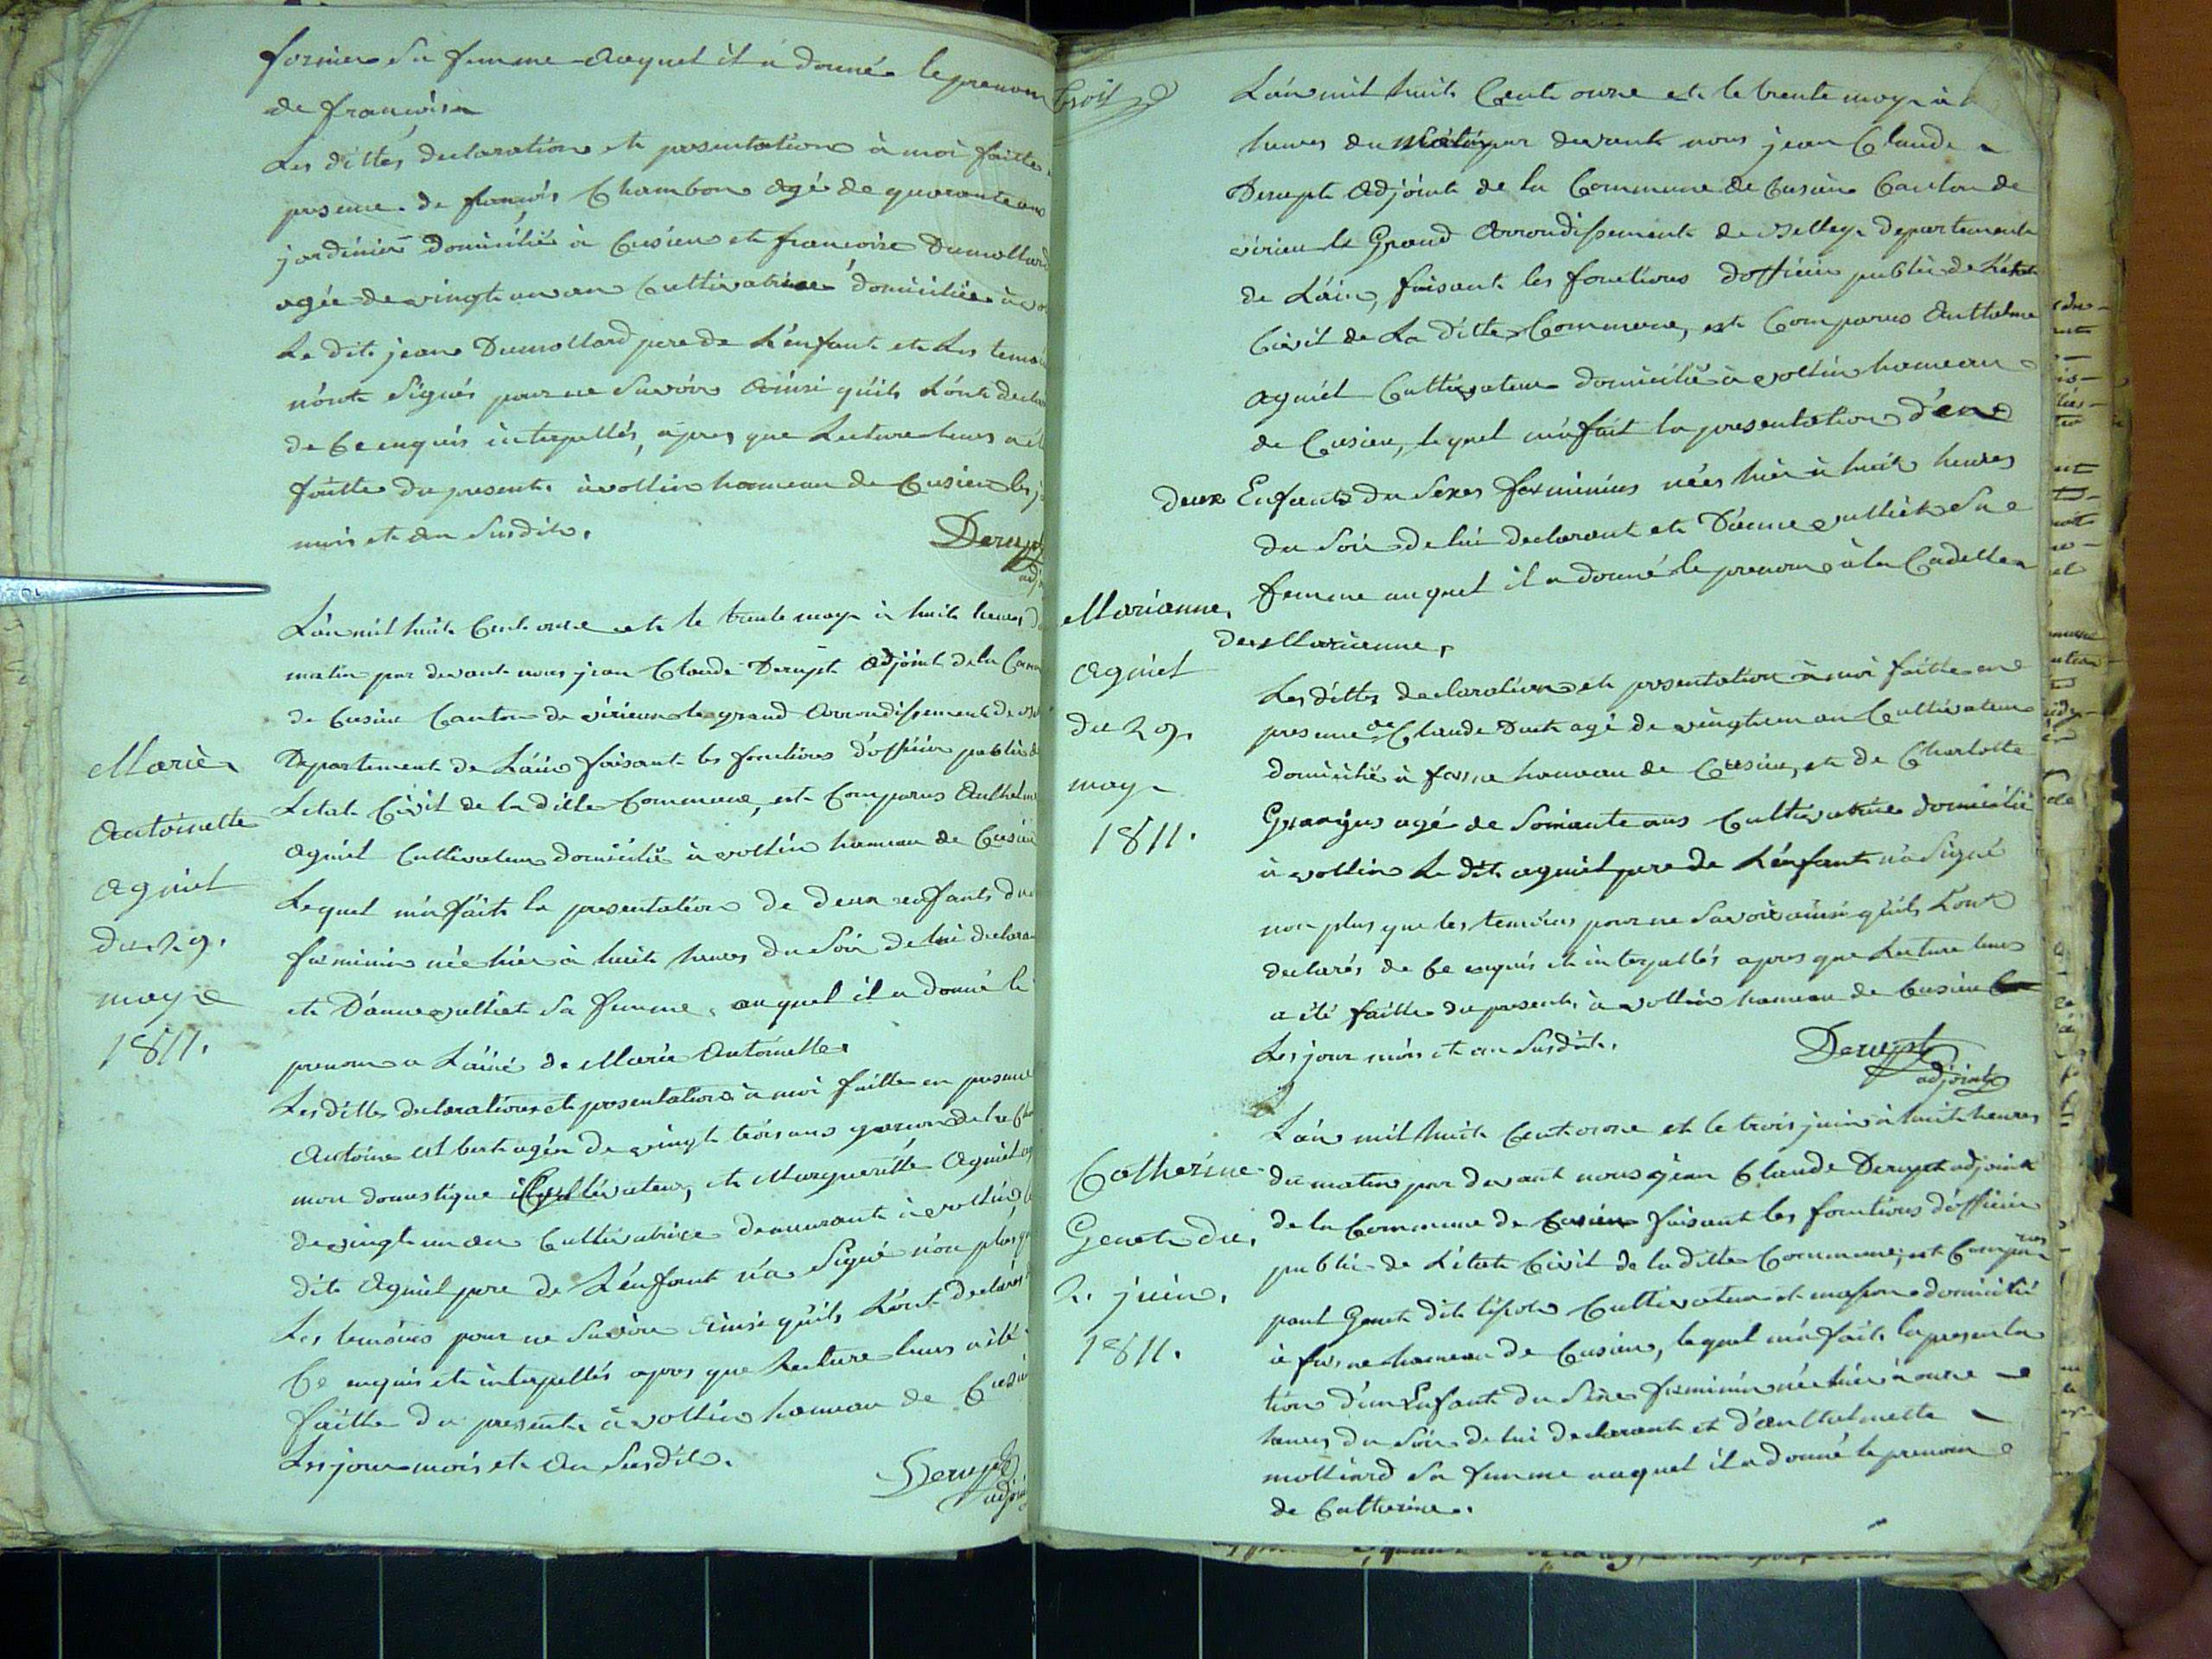 fornier sa femme auquel il a donné le prenom
de françoise
Les dittes declaration et presentation à moi faitte
presence de françois Chambon agé de quarante ans
jardinier domicilié à Cusieu et francoise Dumollard
agée de vingt un an Cultivatrice domiciliée à
Le dit jean Dumollard pere de L'enfant et Les temo
n'ont signés pour ne savoir ainsi qu'ils L'ont decla
de Ce enquis interpellés, apres que Lecture leurs a été
faitte du present à vollin hameau de Cusieu les j
mois et an susdit.
Derupt
adj
Marie
Antoinette
Agniel
du 29.
maye
1811.
L'an mil huit Cent onze et le trente maye à huit heures d
matin par devant nous jean Claude Derupt adjoint de la Com
de Cusieu Canton de virieu le grand arrondissement de
Departement de L'ain faisant les fonctions d'officier public d
L'etat Civil de la ditte Commune, est Comparus Anthelm
agniel Cultivateur domicilié à vollin hameau de Cusieu
Lequel m'a fait la presentation de deux enfants du
feminin née hier à huit heures du soir de lui declara
et D'anne vulliet sa femme, auquel il a donné le
prenom a L'ainé de Marie Antoinette
Les dittes declaration et presentation à moi faitte en presence
Antoine Albert agée de vingt trois ans garcon de
mon domestique Cultivateur, et Margueritte Agniel
de vingt un an Cultivatrice demeurante à vollin, L
dit Agniel pere de L'enfant n'a signé non plus q
Les temoins pour ne savoir ainsi qu'ils L'ont declarés
Ce enquis et interpellés apres que Lecture leurs a été
faitte du present à vollin hameau de Cusieu
Les jour mois et an susdit.
Derupt
adjoi
L'an mil huit Cent onze et le trente maye à
heures du matin par devant nous jean Claude
Derupt adjoint de la Commune de Cusieu Canton de
virieu le Grand arrondissement de Belley departement
de L'ain, faisant les fonctions d'officier public de L'etat
Civil de La ditte Commune, est Comparus Anthelme
agniel Cultivateur domicilié à vollin hameau
de Cusieu, lequel m'a fait la presentation d'en
deux Enfants du sexes feminins nées hier à huit heures
du soir de lui declarant et D'anne vulliet sa
femme auquel il a donné le prenom à la Cadette
de Marianne,
Marianne,
Agniel
du 29.
maye
1811.
Les dittes declaration et presentation à moi faitte en
presence de Claude agé de vingt un an Cultivateur
domicilié à hameau de Cusieu, et de Charlotte
agé de soixante ans Cultivatrice domicilié
à vollin Le dit agniel pere de L'enfant n'a signé
non plus que les temoins pour ne savoir ainsi qu'ils L'ont
declarés de Ce enquis et interpellés apres que Lecture leurs
a été faitte du present à vollin hameau de Cusieu
Les jour mois et an susdit.
Derupt
adjoint
Catherine
Genet du
2. juin.
1811.
L'an mil huit Cent onze et le trois juin à huit heures
du matin par devant nous jean Claude Derupt adjoint
de la Commune de Cusieu faisant les fonctions d'officier
public de L'etat Civil de la ditte Commune, est Comparus
paul Genet dit Cultivateur et maçon domicilié
à hameau de Cusieu, lequel m'a fait la presenta
tion d'un Enfant du sexe feminin née hier à onze
heures du soir de lui declarant et d'anthelmette
molliard sa femme auquel il a donné le prenom
de Catherine.